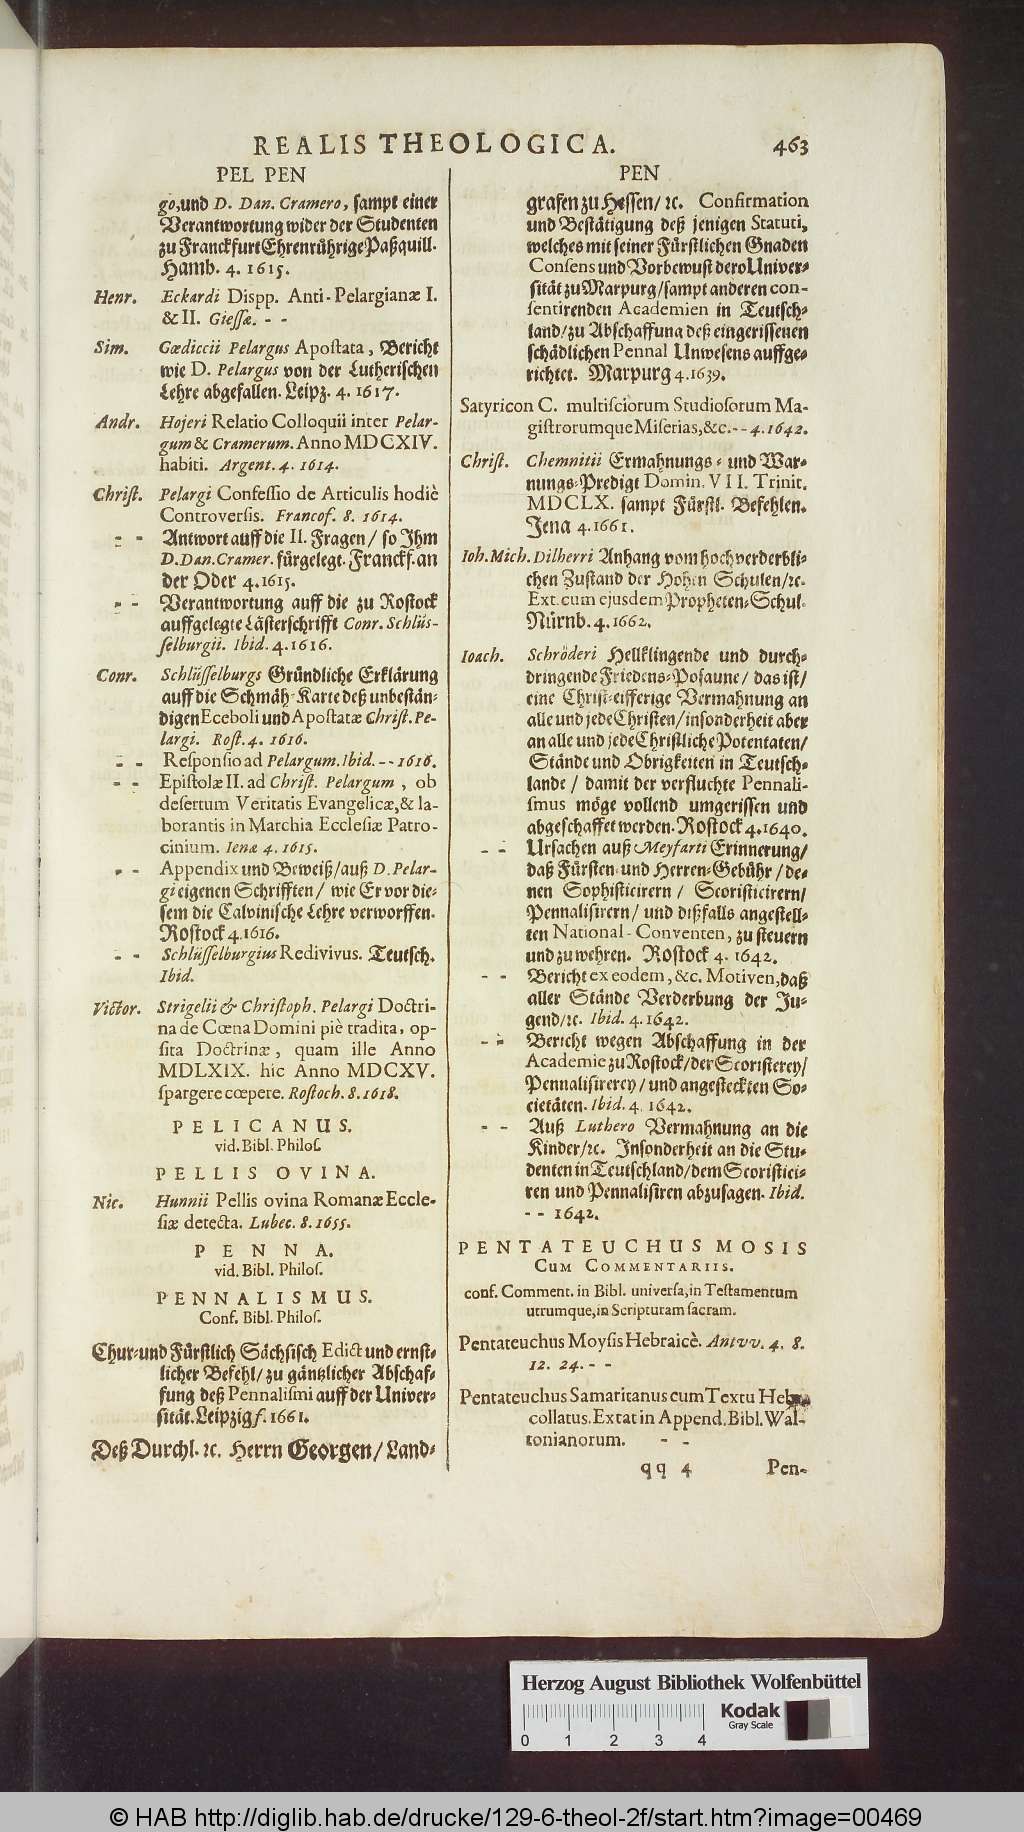 REALIS THEOLOGICA. 463
PEL PEN
go, und D. Dan. Cramero, sampt einer
Verantwortung wider der Studenten
zu Franckfurt Ehrenrührige Paßquill.
Hamb. 4. 1615.
Henr. Eckardi Dispp. Anti-Pelargianæ I.
& II. Giessæ. - -
Sim. Gædiccii Pelargus Apostata, Bericht
wie D. Pelargus von der Lutherischen
Lehre abgefallen. Leipz. 4. 1617.
Andr. Hojeri Relatio Colloquii inter Pelar-
gum & Cramerum. Anno MDCXIV.
habiti. Argent. 4. 1614.
Christ. Pelargi Confessio de Articulis hodiè
Controversis. Francof. 8. 1614.
- - Antwort auff die II. Fragen / so Ihm
D. Dan. Cramer. fürgelegt. Franckf. an
der Oder 4. 1615.
- - Verantwortung auff die zu Rostock
auffgelegte Lästerschrifft Conr. Schlüs-
selburgii. Ibid. 4. 1616.
Conr. Schlüsselburgs Gründliche Erklärung
auff die Schmäh-Karte deß unbestän-
digen Eceboli und Apostatæ Christ. Pe-
largi. Rost. 4. 1616.
- - Responsio ad Pelargum. Ibid. - - 1616.
- - Epistolæ II. ad Christ. Pelargum, ob
desertum Veritatis Evangelicæ, & la-
borantis in Marchia Ecclesiæ Patro-
cinium. Ienæ 4. 1615.
- - Appendix und Beweiß / auß D. Pelar-
gi eigenen Schrifften / wie Er vor die-
sem die Calvinische Lehre verworffen.
Rostock 4. 1616.
- - Schlüsselburgius Redivivus. Teutsch.
Ibid.
Victor. Strigelii & Christoph. Pelargi Doctri-
na de Cœna Domini piè tradita, op-
sita Doctrinæ, quam ille Anno
MDLXIX. hic Anno MDCXV.
spargere cœpere. Rostoch. 8. 1618.
PELICANUS.
vid. Bibl. Philos.
PELLIS OVINA.
Nic. Hunnii Pellis ovina Romanæ Eccle-
siæ detecta. Lubec. 8. 1655.
PENNA.
vid. Bibl. Philos.
PENNALISMUS.
Conf. Bibl. Philos.
Chur- und Fürstlich Sächsisch Edict und ernst-
licher Befehl / zu gäntzlicher Abschaf-
fung deß Pennalismi auff der Univer-
sität. Leipzig f. 1661.
Deß Durchl. ꝛc. Herrn Georgen / Land-
PEN
grafen zu Hessen / ꝛc. Confirmation
und Bestätigung deß jenigen Statuti,
welches mit seiner Fürstlichen Gnaden
Consens und Vorbewust dero Univer-
sität zu Marpurg / sampt anderen con-
sentirenden Academien in Teutsch-
land / zu Abschaffung deß eingerissenen
schädlichen Pennal Unwesens auffge-
richtet. Marpurg 4. 1639.
Satyricon C. multisciorum Studiosorum Ma-
gistrorumque Miserias, &c. - - 4. 1642.
Christ. Chemnitii Ermahnungs- und War-
nungs-Predigt Domin. VII. Trinit.
MDCLX. sampt Fürstl. Befehlen.
Jena 4. 1661.
Ioh. Mich. Dilherri Anhang vom hochverderbli-
chen Zustand der Hohen Schulen / ꝛc.
Ext. cum ejusdem Propheten-Schul.
Nürnb. 4. 1662.
Ioach. Schröderi Hellklingende und durch-
dringende Friedens-Posaune / das ist /
eine Christ-eifferige Vermahnung an
alle und jede Christen / insonderheit aber
an alle und jede Christliche Potentaten /
Stände und Obrigkeiten in Teutsch-
lande / damit der verfluchte Pennali-
smus möge vollend umgerissen und
abgeschaffet werden. Rostock 4. 1640.
- - Ursachen auß Meyfarti Erinnerung /
daß Fürsten- und Herren-Gebühr / de-
nen Sophisticirern / Scoristicirern /
Pennalisirern / und dißfalls angestell-
ten National-Conventen, zu steuern
und zu wehren. Rostock 4. 1642.
- - Bericht ex eodem, &c. Motiven, daß
aller Stände Verderbung der Ju-
gend / ꝛc. Ibid. 4. 1642.
- - Bericht wegen Abschaffung in der
Academie zu Rostock / der Scoristerey /
Pennalisirerey / und angesteckten So-
cietäten. Ibid. 4. 1642.
- - Auß Luthero Vermahnung an die
Kinder / ꝛc. Insonderheit an die Stu-
denten in Teutschland / dem Scoristici-
ren und Pennalisiren abzusagen. Ibid.
- - 1642.
PENTATEUCHUS MOSIS
CUM COMMENTARIIS.
conf. Comment. in Bibl. universa, in Testamentum
utrumque, in Scripturam sacram.
Pentateuchus Moysis Hebraicè. Antvv. 4. 8.
12. 24. - -
Pentateuchus Samaritanus cum Textu
collatus. Extat in Append. Bibl. Wal-
tonianorum. - -
qq 4 Pen-
Herzog August Bibliothek Wolfenbüttel
Kodak
Gray Scale
0 1 2 3 4
© HAB http://diglib.hab.de/drucke/129-6-theol-2f/start.htm?image=00469